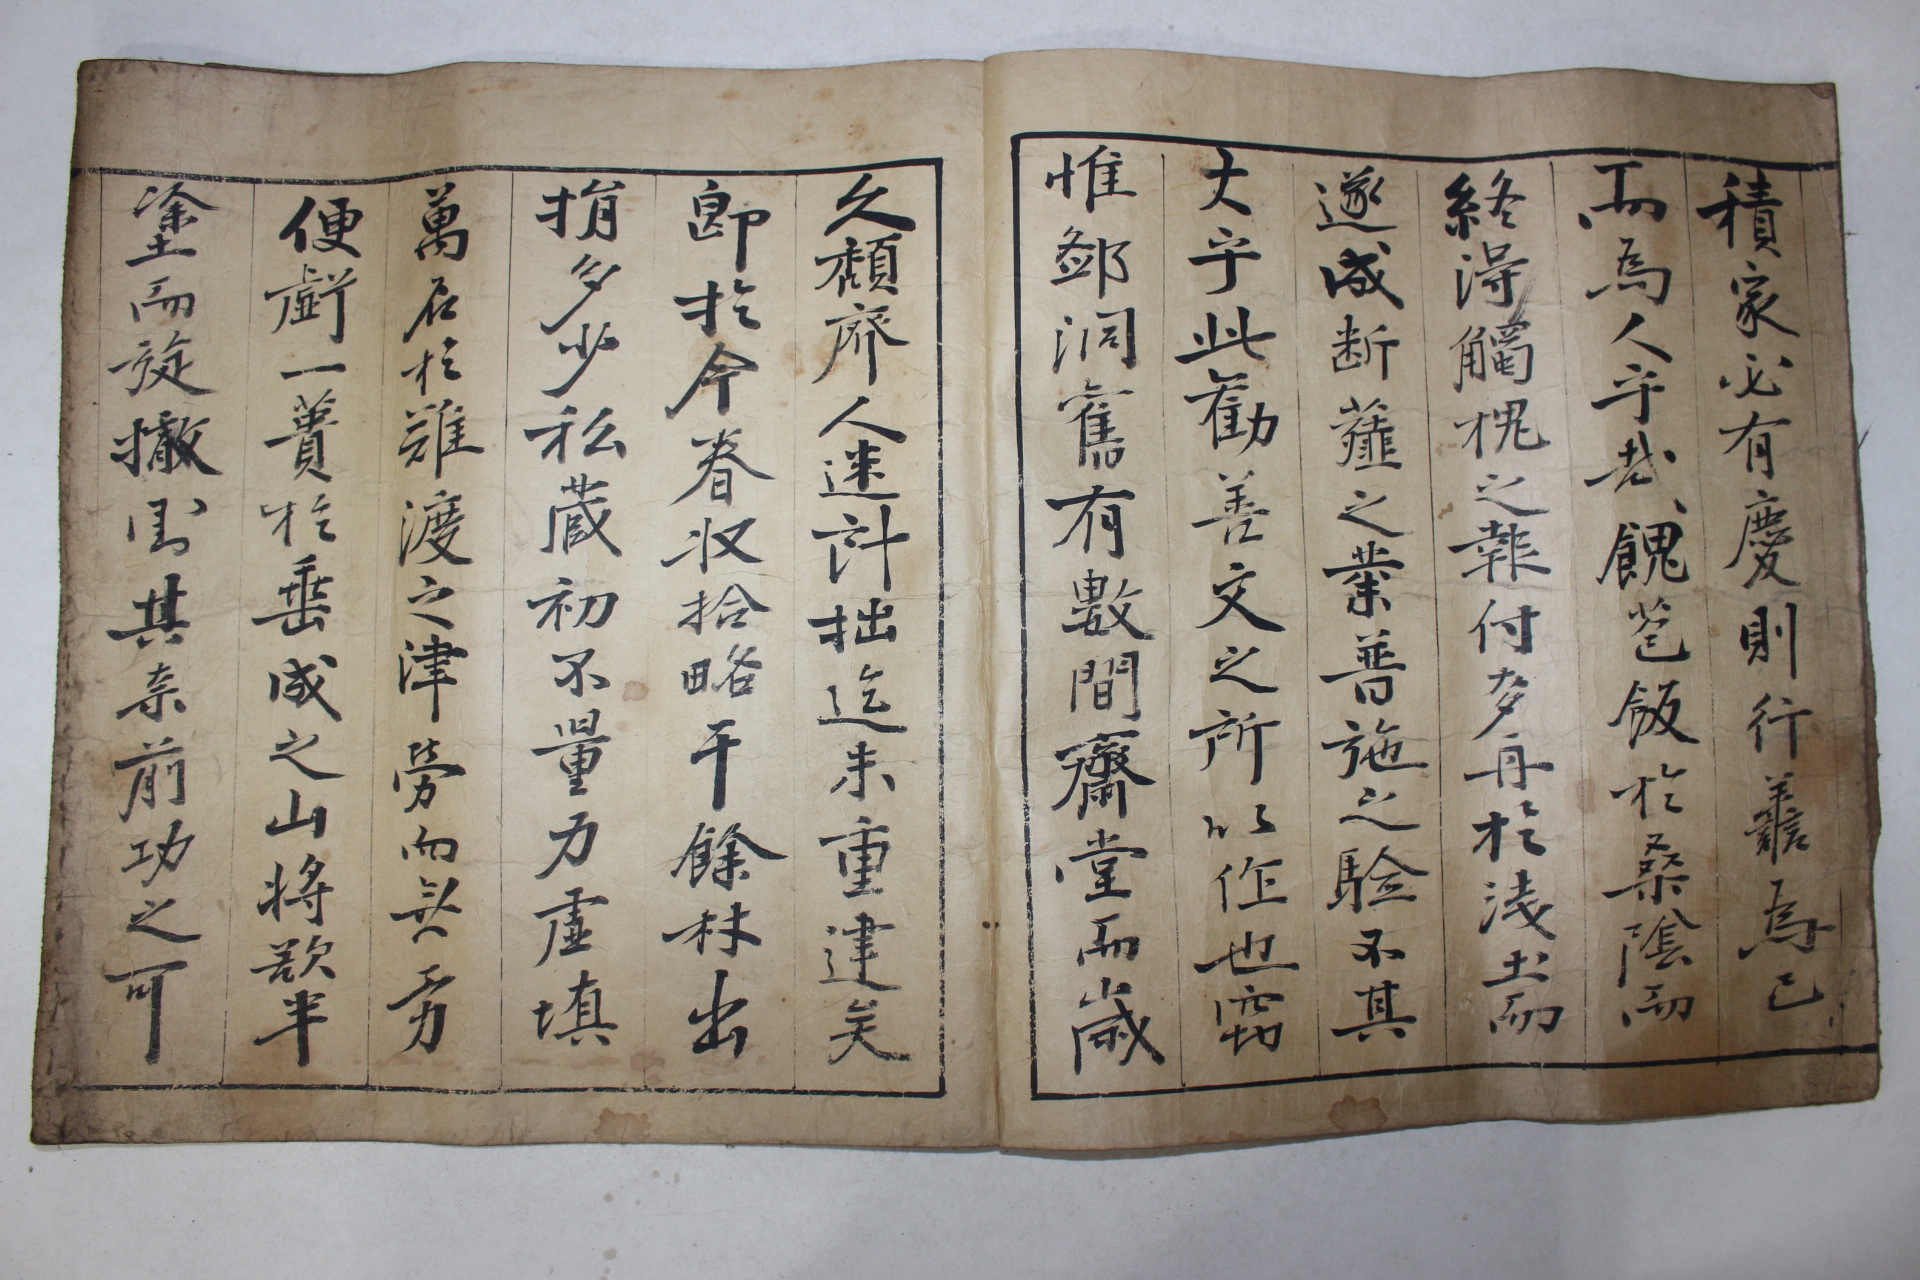 積家必有慶則行善為己
而為人乎哉餽苞飯於桑陰而
終得觸槐之報付麥舟於淺土而
遂成断虀之業普施之驗不其
大乎此勸善文之所以作也窃
惟鄒洞舊有數間齋堂而歲
久頹廢人迷計拙迄未重建矣
即於今春収拾略干餘材出
捐多少私蔵初不量力虛填
萬石於難渡之津勞而無勇
便虧一蕢於垂成之山將欲半
塗而旋撤其奈前功之可